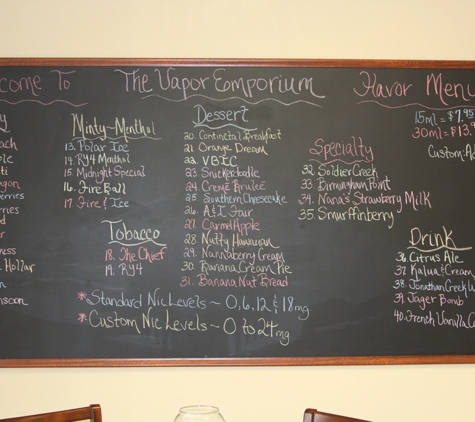 come To The Vapor Emporium Flavor Menu
15ml = $7.95
30ml = $13.9
Custom A
Minty-Menthol
13. Polar Ice
14. RY4 Menthol
15. Midnight Special
16. Fire Ball
17. Fire & Ice
Tobacco
18. The Chief
19. RY4
Dessert
20. Continetal Breakfast
21. Orange Dream
22. VBIC
23. Snickerdoodle
24. Creme Brulee
25. Southern Cheesecake
26. A&I Fair
27. Carmel Apple
28. Nutty Hawaiian
29. Nannaberry Cream
30. Banana Cream Pie
31. Banana Nut Bread
Specialty
32. Soldier Creek
33. Birmingham Point
34. Nana's Strawberry Milk
35. Smurffinberry
Drink
36. Citrus Ale
37. Kalua & Cream
38. Jonathan Creek W
39. Jager Bomb
40. French Vanilla C
* Standard Nic Levels ~ 0, 6, 12 & 18mg
* Custom Nic Levels ~ 0 to 24mg